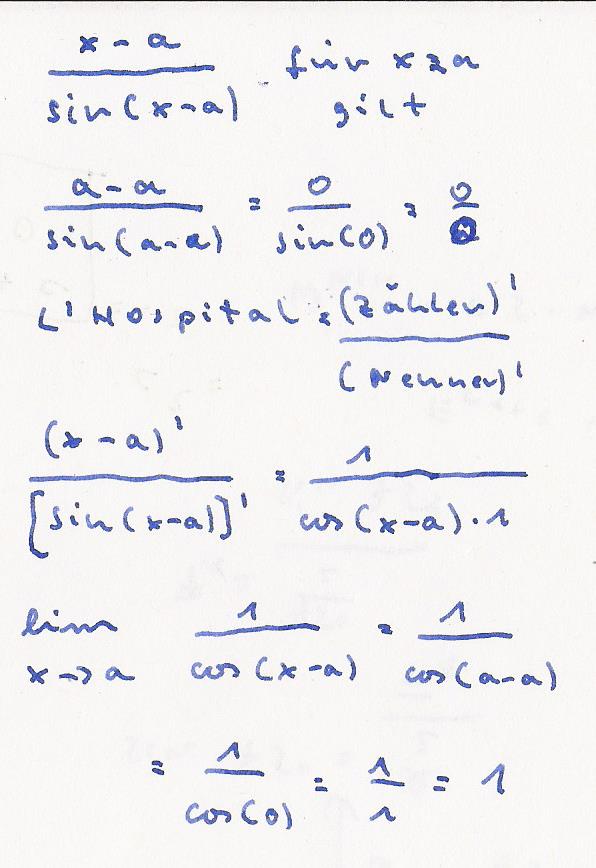 x-a / sin(x-a) für x=a gilt
a-a / sin(a-a) = 0 / sin(0) = 0 / 0
L'Hospital = (Zähler)' / (Nenner)'
(x-a)' / [sin(x-a)]' = 1 / cos(x-a)·1
lim x→a 1 / cos(x-a) = 1 / cos(a-a)
= 1 / cos(0) = 1 / 1 = 1